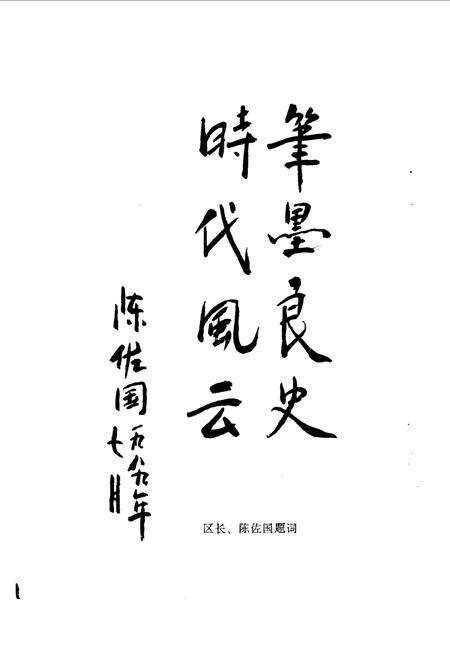 筆墨良史
時代風云
陈佐国
一九八九年
七月
区长、陈佐国题词